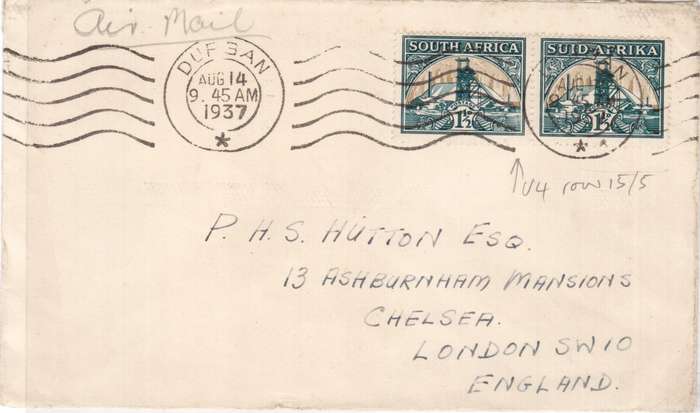 Air Mail
DURBAN
AUG 14
9. 45 AM
1937
SOUTH AFRICA
1½
SUID-AFRIKA
1½
V4 row 15/5
P. H. S. HUTTON ESQ.
13 ASHBURNHAM MANSIONS
CHELSEA.
LONDON SW10
ENGLAND.